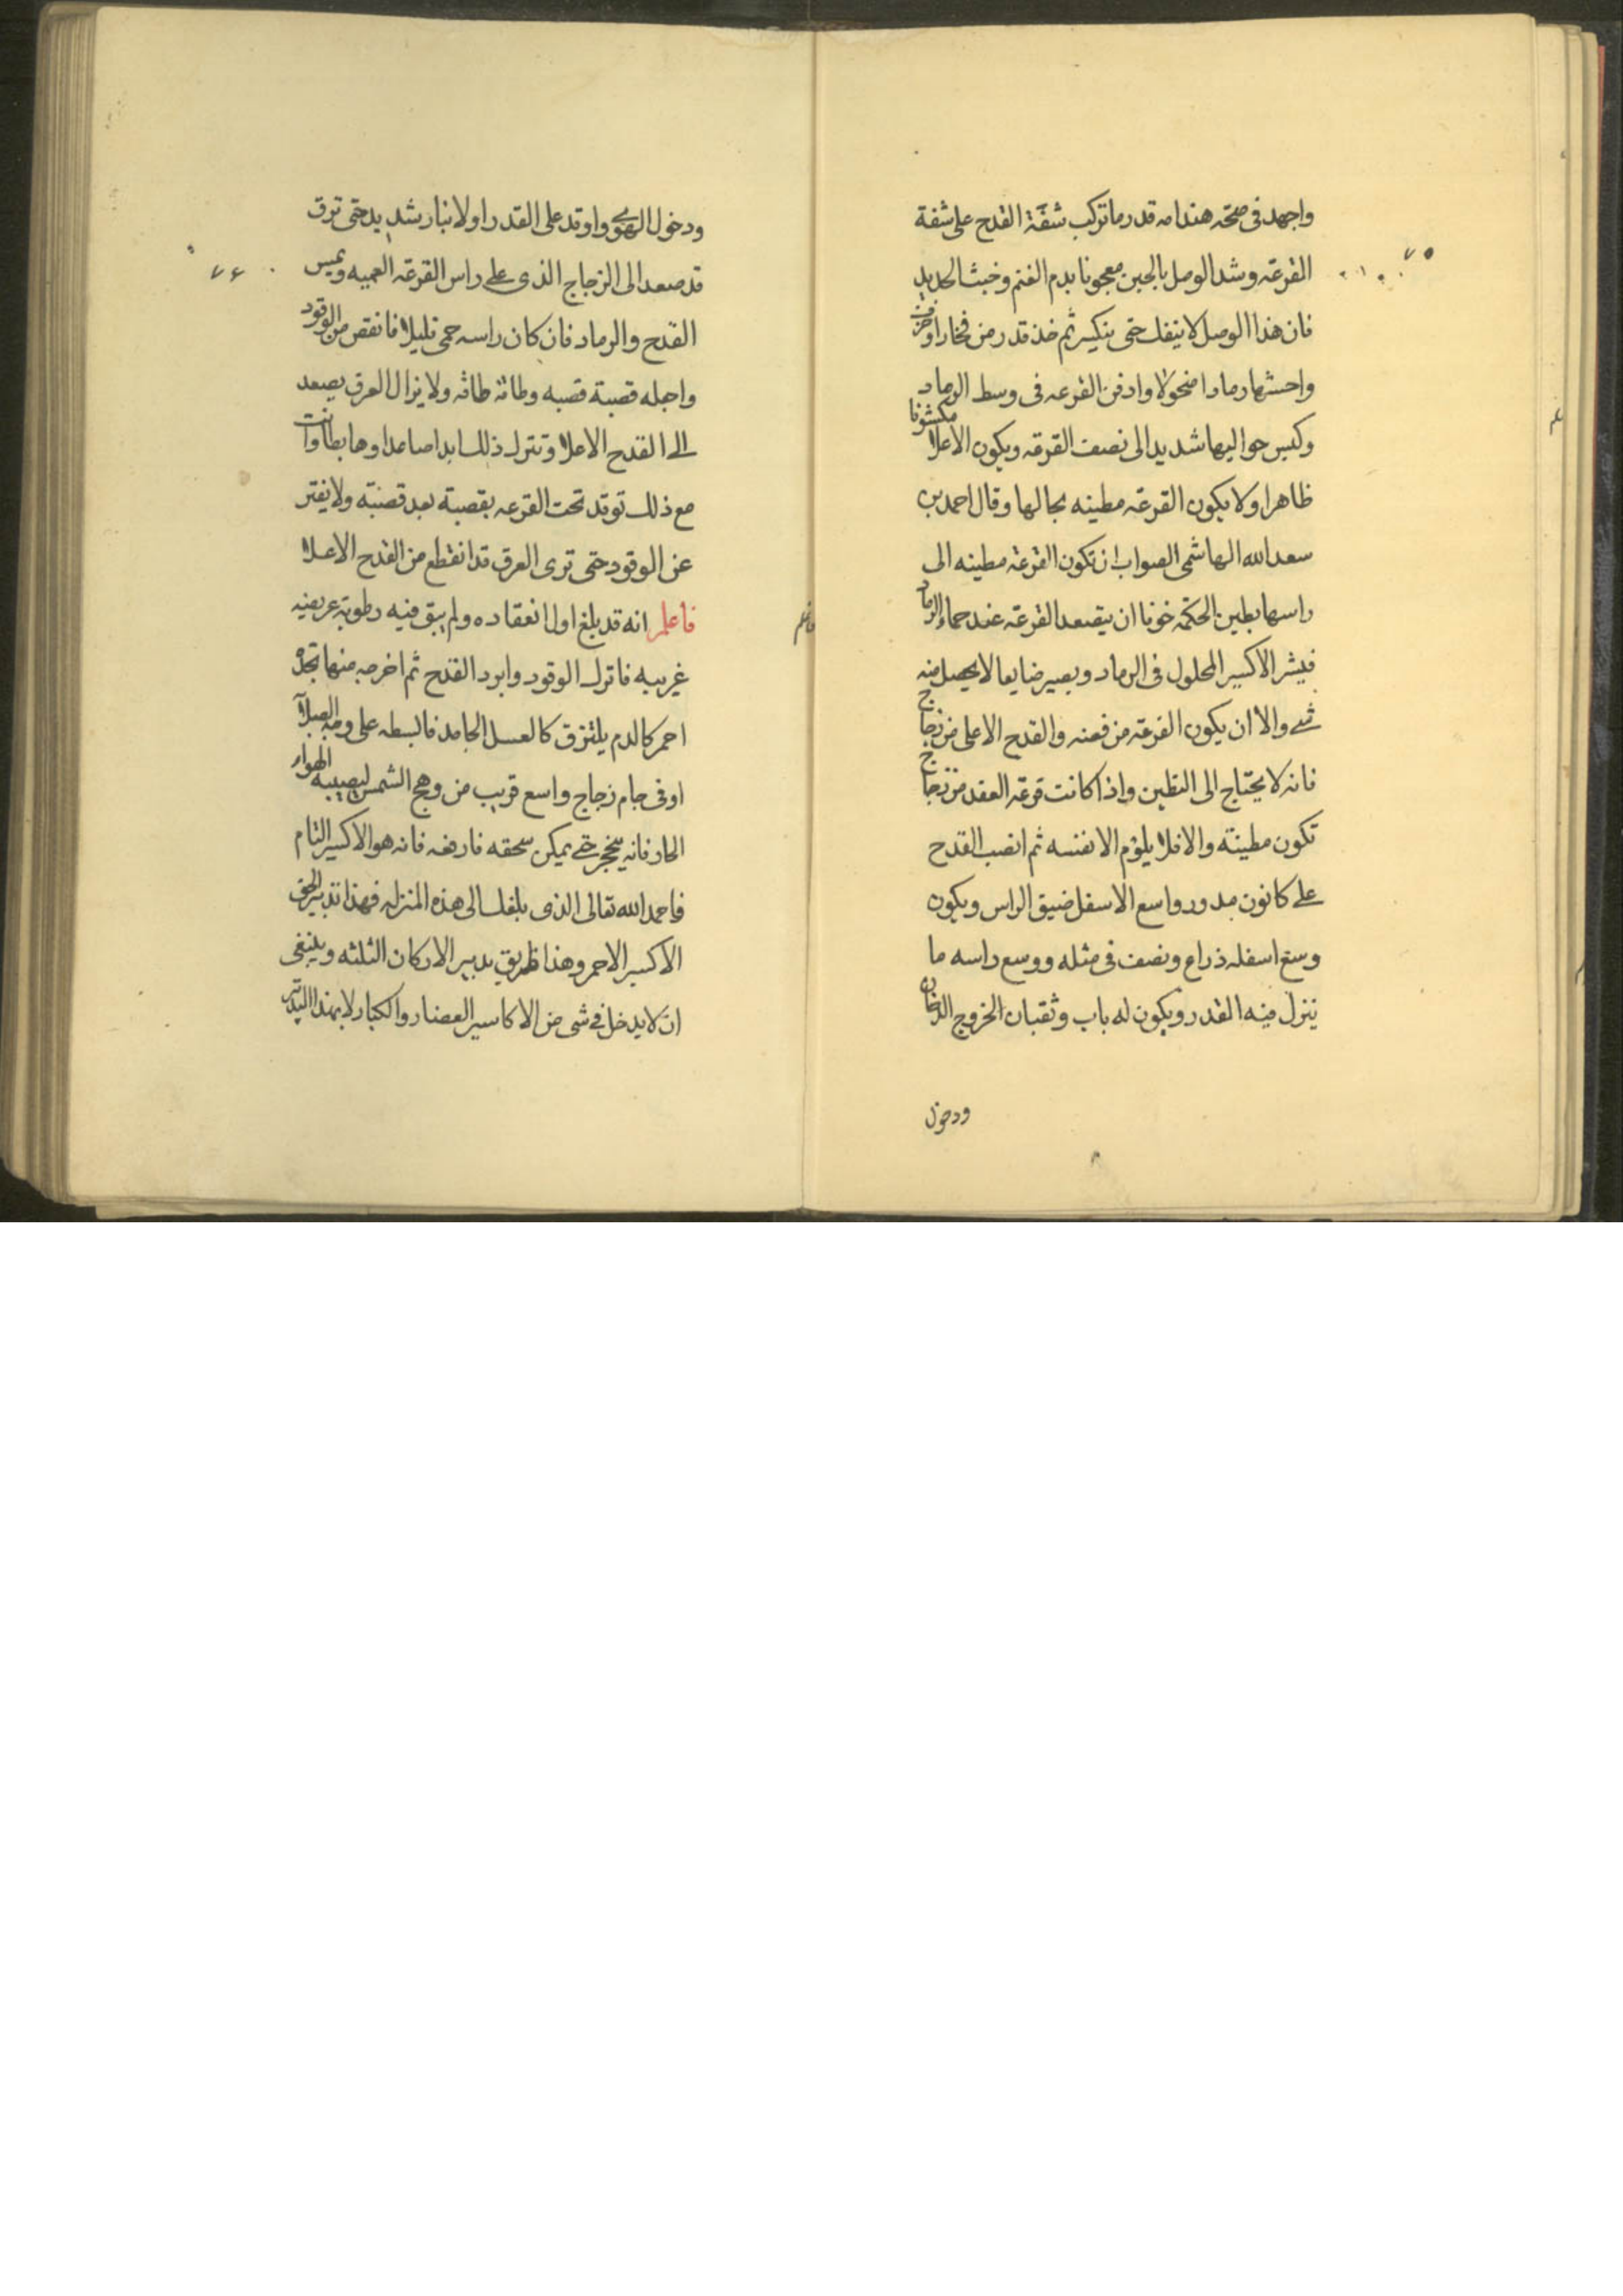 ٧٥
واجهد فى صحة هندامه قدر ما تركب شفة القدح على شفة
القرعة وشد الوصل بالجبن معجونا بدم الغنم وخبث الحديد
فان هذا الوصل لا ينفك حتى ينكسر ثم خذ قدر من فخار او خزف
واحشها رمادا منخولا وادفن القرعه فى وسط الرماد
وكبس حواليها شديدا الى نصف القرعه ويكون الاعلا مكشوفا
ظاهرا ولا يكون القرعة مطينه بحالها وقال احمد بن
سعد الله الهاشمى الصواب ان تكون القرعة مطينه الى
راسها بطين الحكمه خوفا ان يتصعد القرعة عند حماء الرماد
فيشر الاكسير المحلول فى الرماد ويصير ضايعا لا يحصل منه
شى والا ان يكون القرعة من فضه والقدح الاعلى من زجاج
فانه لا يحتاج الى التطين واذا كانت قرعة العقد من زجاج
تكون مطينة والا فلا يلوم الا نفسه ثم انصب القدح
على كانون مدور واسع الاسفل ضيق الراس ويكون
وسع اسفله ذراع ونصف فى مثله ووسع راسه ما
ينزل فيه القدر ويكون له باب وثقبان الخروج الدخان
ودخول
٧٦
ودخول الهوى واوقد على القدر اولا بنار شديد حتى ترق
قد صعد الى الزجاج الذى على راس القرعة العميه ويمس
القدح والرماد فان كان راسه حمى قليلا فانقص من الوقود
واجله قصبة قصبه وطاقة طاقه ولا يزال العرق يصعد
الى القدح الاعلا وتترك ذلك ابدا صاعدا وهابطا وانت
مع ذلك توقد تحت القرعه بقصبة بعد قصبته ولا يفتر
عن الوقود حتى ترى العرق قد انقطع من القدح الاعلا
فاعلم انه قد بلغ اول انعقاده ولم يبق فيه رطوبة عريضه
غريبه فاترك الوقود وابرد القدح ثم اخرجه منها تجده
احمر كالدم يلتزق كالعسل الجامد فالبسطه على وجه الصلآ
او فى جام زجاج واسع قريب من وهج الشمس ليصيبه الهوار
الحار فانه يتحجر حتى يمكن سحقه فارفعه فانه هو الاكسير التام
فاحمد الله تعالى الذى بلغك الى هذه المنزله فهذا تدبير الحق
الاكسير الاحمر وهذا طريق تدبير الاركان الثلثه وينبغى
ان لا يدخل فى شى من الاكاسير الصغار والكبار لا بهذا التدبير